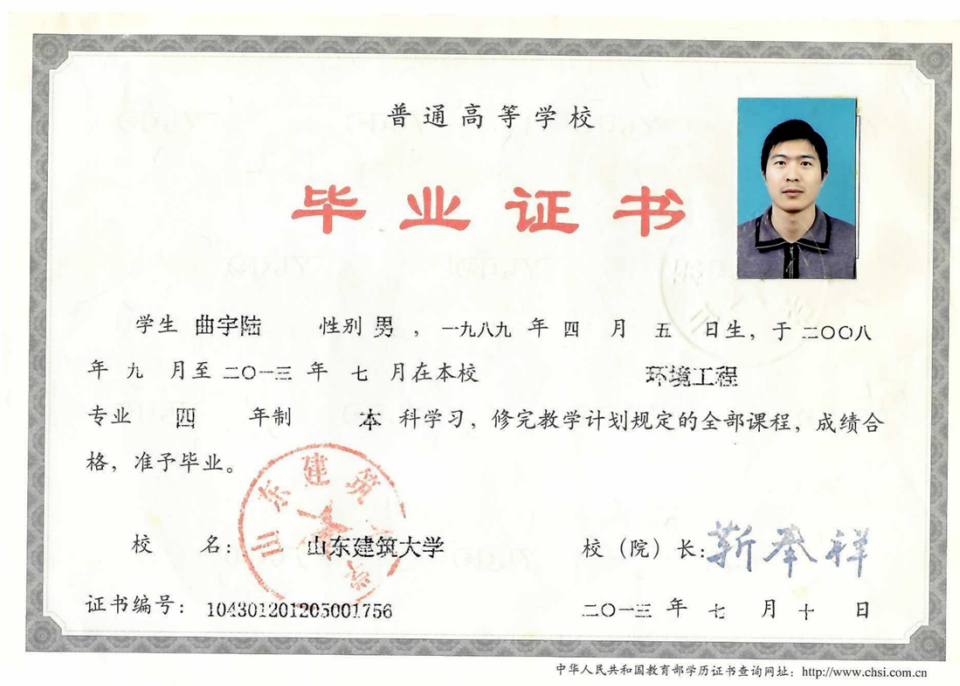 普通高等学校
毕业证书
学生 曲宇陆 性别 男 ，一九八九 年 四 月 五 日生，于 二〇〇八
年 九 月至 二〇一三 年 七 月在本校 环境工程
专业 四 年制 本 科学习，修完教学计划规定的全部课程，成绩合
格，准予毕业。
山东建筑大学
校 名： 山东建筑大学 校（院）长： 靳奉祥
证书编号： 104301201205001756 二〇一三 年 七 月 十 日
中华人民共和国教育部学历证书查询网址：http://www.chsi.com.cn